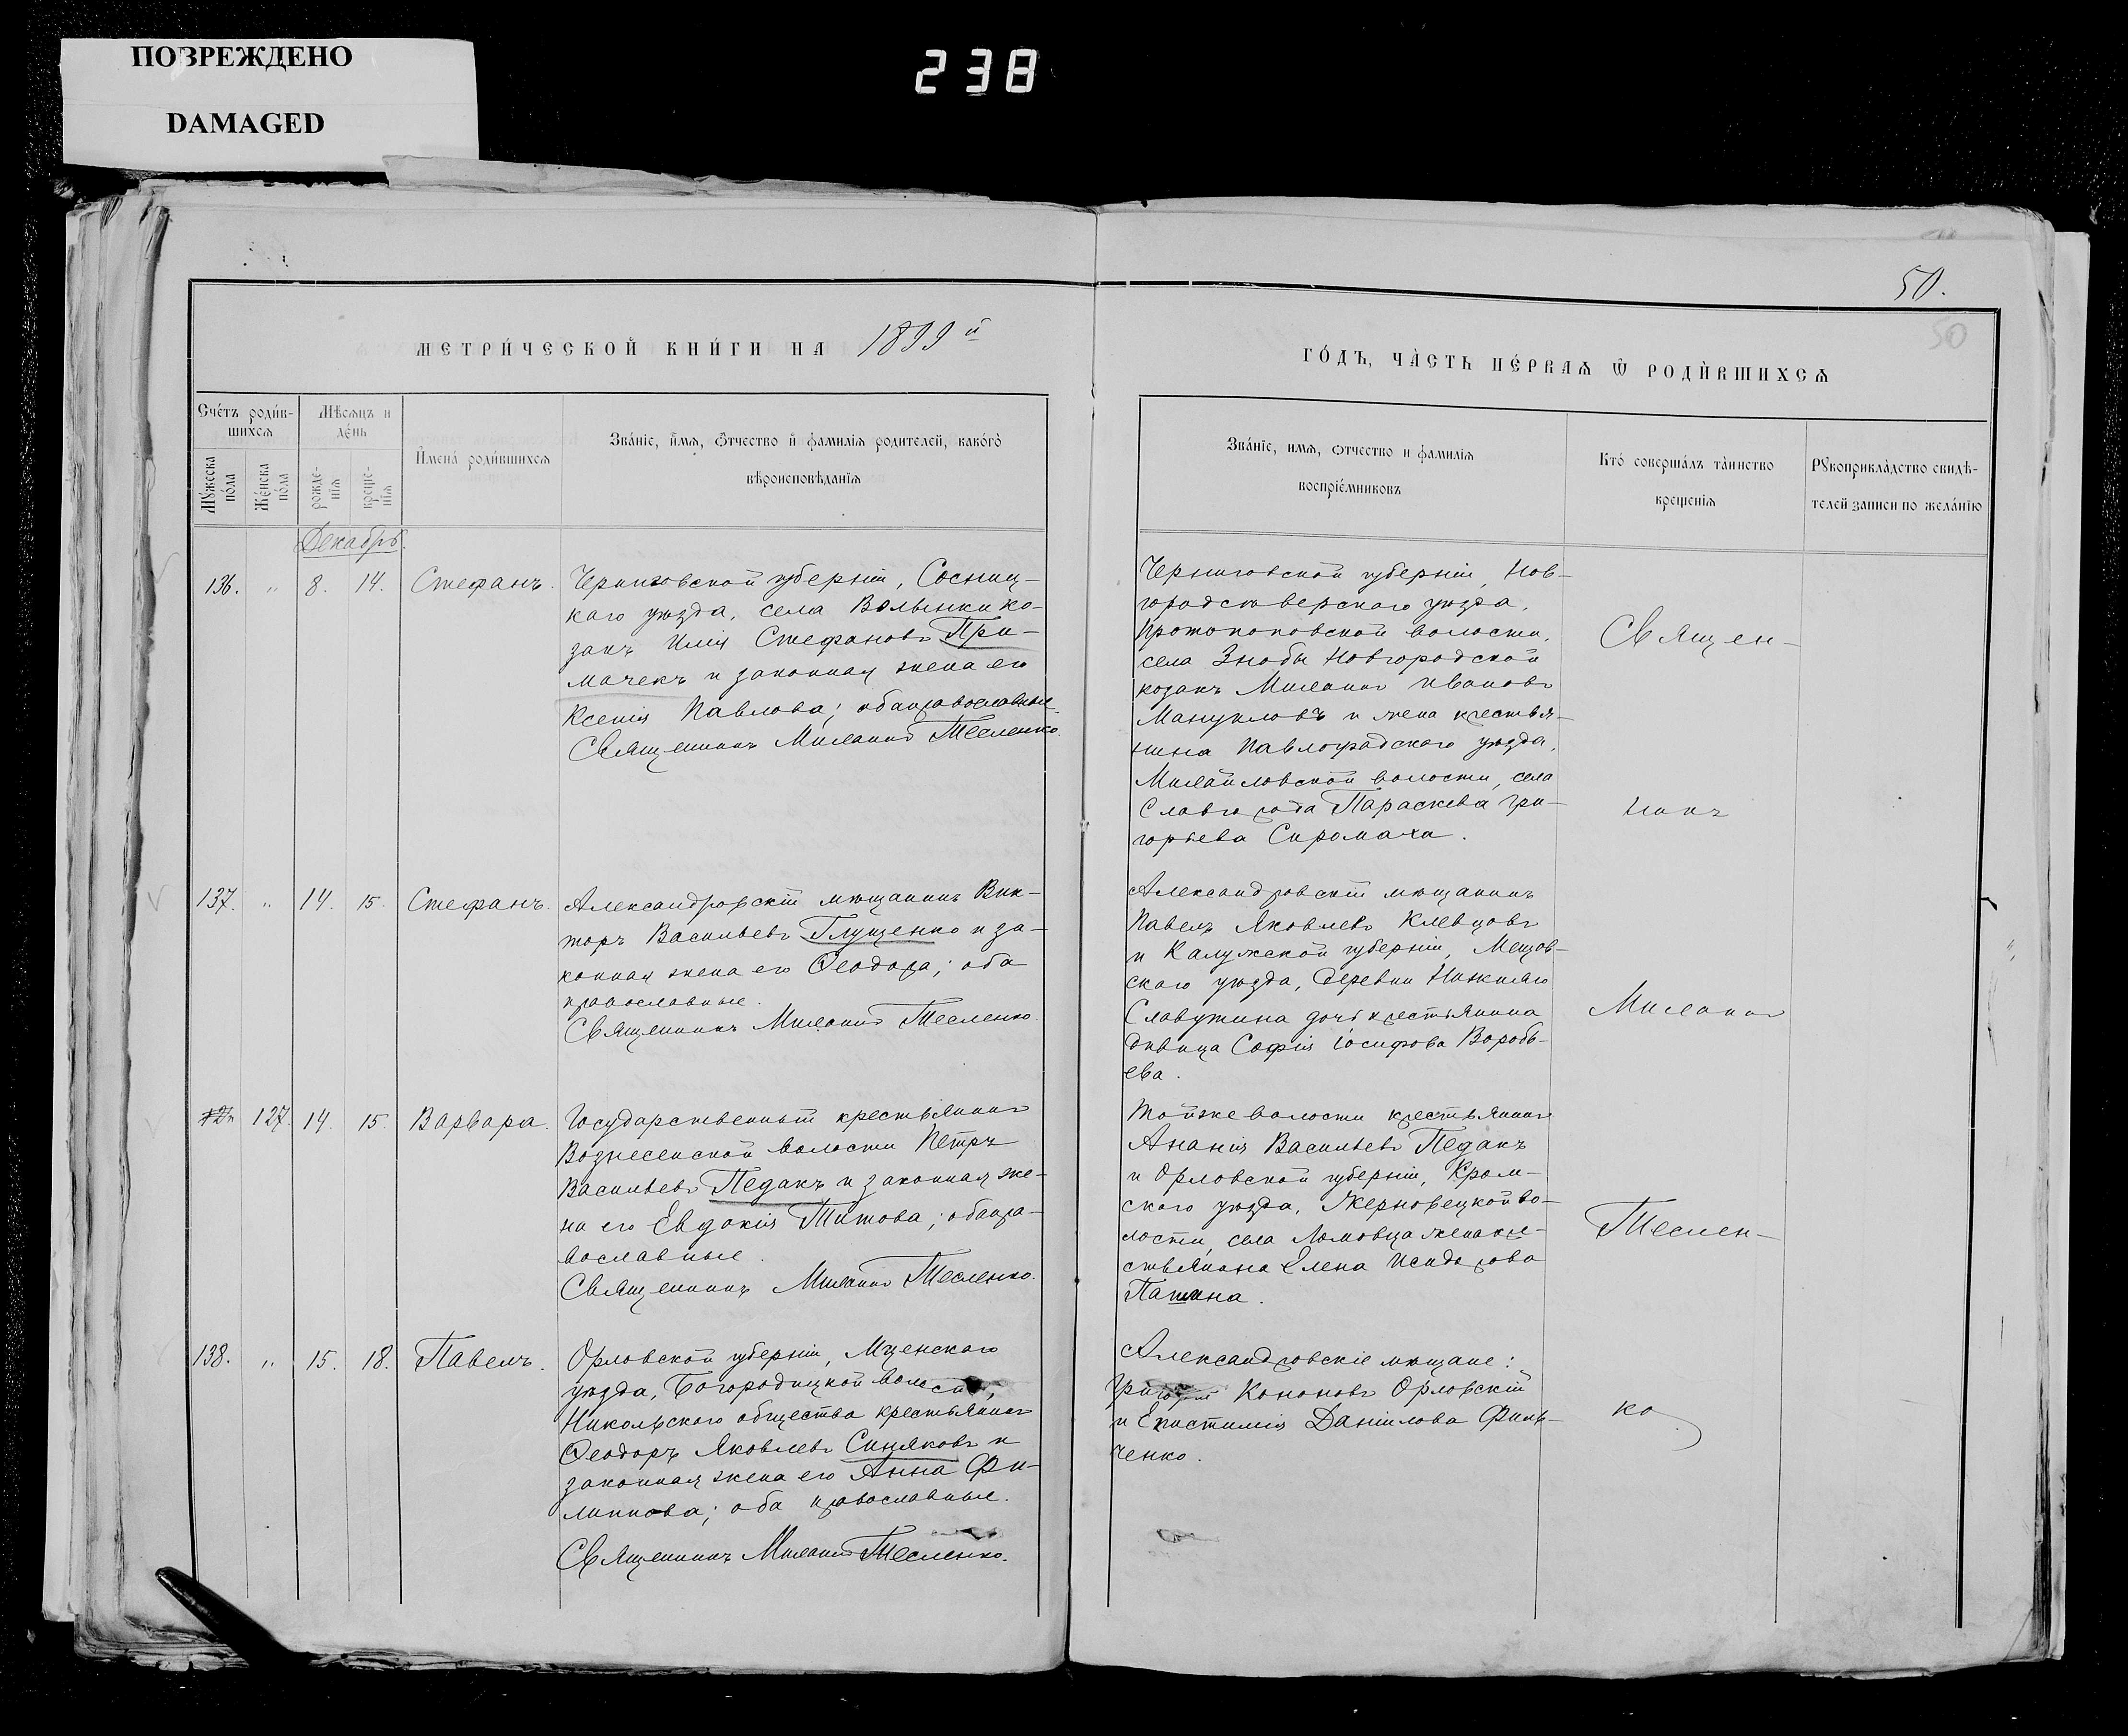 ПОВРЕЖДЕНО
DAMAGED
238
50.
50
МЕТРИ́ЧЕСКОЙ КНИ́ГИ НА 1899й
ГО́ДЪ, ЧА́СТЬ ПЕ́РВАЯ Ѿ РОДИ́ВШИХСЯ
Сче́тъ роди́в-
шихся
Мѣсяцъ и
де́нь
Мꙋжеска
по́ла
Же́нска
по́ла
рожде-
нїя
креще-
нїя
И҆мена́ роди́вшихся
Зва́нїе, и҆́мя, ѻ҆́тчество и҆ фами́лїя родителей, како́гѡ
вѣроисповѣ́данїя
Зва́нїе, имя, ѻтчество и фамилїя
воспрїе́мниковъ
Кто́ соверша́лъ та́инство
креще́нїя
Рꙋкоприкла́дство свидѣ-
телей записи по жела́нїю
Декабрь.
136. " 8. 14. Стефанъ.
Черниговской губерніи, Сосниц-
каго уѣзда, села Волынки ко-
закъ Илія Стефановъ При-
мачекъ и законная жена его
Ксенія Павлова; оба православные.
Священникъ Тесленко
Черниговской губерніи, Нов-
городсѣверскаго уѣзда,
Протопоповской волости,
села Зноби Новгородской
козакъ Ивановъ
Мануиловъ и жена крестья-
нина Павлоградскаго уѣзда,
Михайловской волости, села
Славгорода Параскева Гри-
горьева Сиромаха.
Священ-
никъ
137. " 14. 15. Стефанъ.
Александровскій мѣщанинъ Вик-
торъ Васильевъ Глущенко и за-
конная жена его Ѳеодора; оба
православные.
Священникъ Тесленко
Александровскій мѣщанинъ
Павелъ Яковлевъ Клевцовъ
и Калужской губерніи, Мещов-
скаго уѣзда, деревни Нижняго
Славутина дочь крестьянина
дѣвица Софія Іосифова Воробь-
ева.
127. 14. 15. Варвара.
Государственный крестьянинъ
Вознесенской волости Петръ
Васильевъ Педакъ и законная же-
на его Евдокія Титова; оба пра-
вославные.
Священникъ Тесленко.
Тойже волости крестьянинъ
Ананія Васильевъ Педакъ
и Орловской губерніи, Кром-
скаго уѣзда, Жерновецкой во-
лости, села Ломовца жена кре-
стьянина Елена Исидорова
Пашина.
Теслен-
138. " 15. 18. Павелъ.
Орловской губерніи, Мценскаго
уѣзда, Богородицкой волости,
Никольскаго общества крестьянинъ
Ѳеодоръ Яковлевъ Синяковъ и
законная жена его Анна Фи-
липпова; оба православные.
Священникъ Тесленко.
Александровскіе мѣщане:
Григорій Кононовъ Орловскій
и Епистимія Даніилова Финь-
ченко.
ко